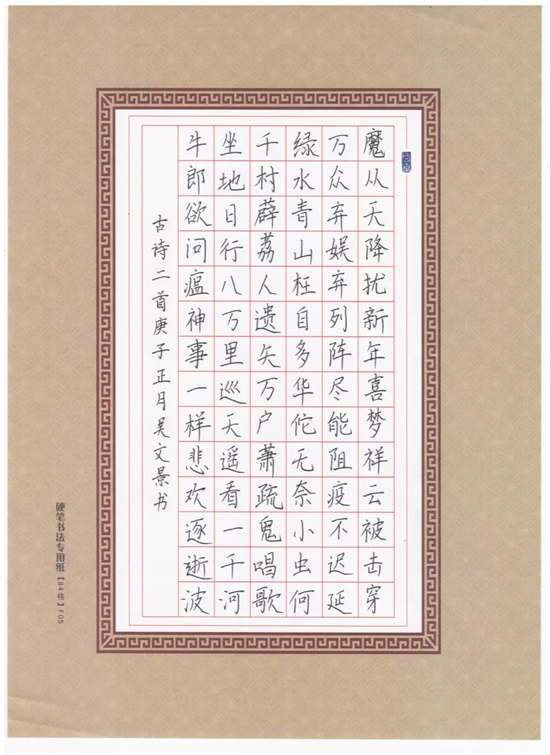 魔从天降扰新年喜梦祥云被击穿
万众弃娱弃列阵尽能阻疫不迟延
绿水青山枉自多华佗无奈小虫何
千村薜荔人遗矢万户萧疏鬼唱歌
坐地日行八万里巡天遥看一千河
牛郎欲问瘟神事一样悲欢逐逝波
古诗二首庚子正月吴文景书
硬笔书法专用纸【84格】F05